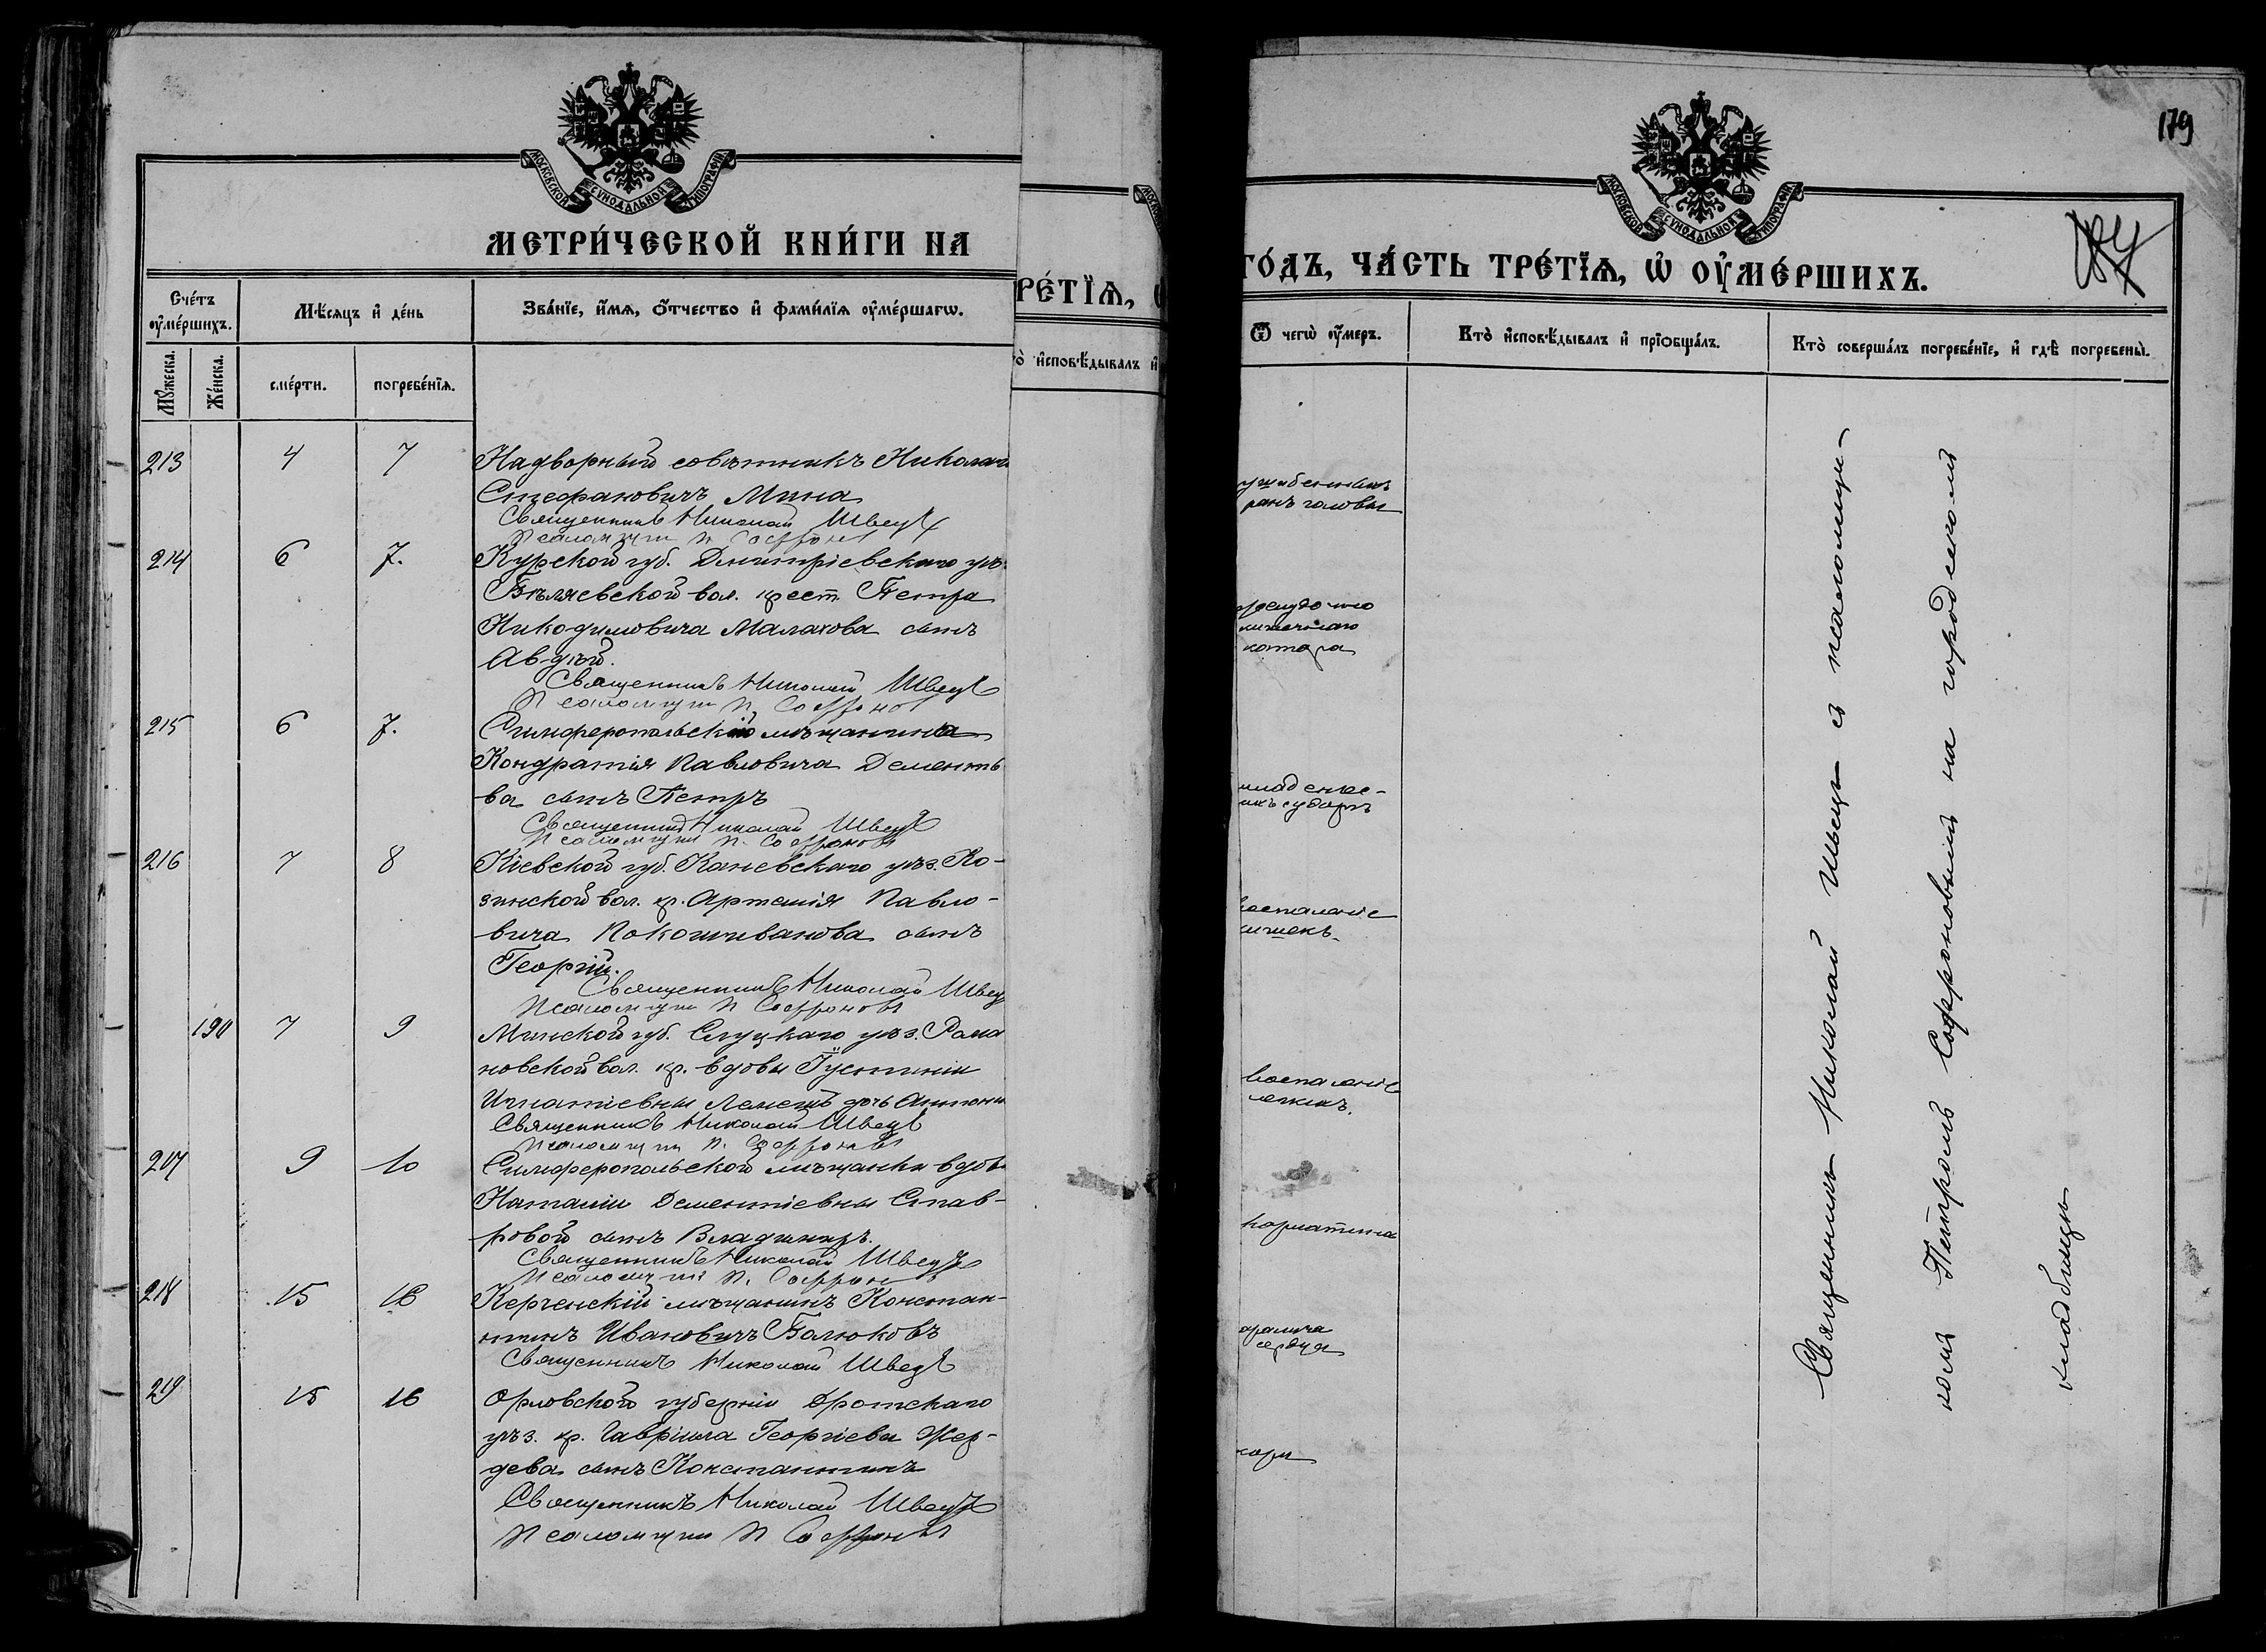 МОСКОВСКОЙ СѴНОДАЛЬНОЙ ТИПОГРАФІИ
МЕТРИ́ЧЕСКОЙ КНИ́ГИ НА
Сче́тъ ᲂу҆ме́ршихъ.
Мѣ́сяцъ и҆ де́нь
Зва́нїе, и҆́мѧ, ѻ҆́тчество и҆ фами́лїѧ ᲂу҆ме́ршагѡ.
Мꙋ́жеска.
Же́нска.
сме́рти.
погребе́нїѧ.
213 4 7 Надворный совѣтникъ Николай
Стефановичъ Мина
Священникъ Николай Швецъ
Псаломщикъ П. Софроновъ
214 6 7. Курской губ. Дмитріевскаго уѣ.
Бѣляевской вол. крест. Петра
Никодимовича Малахова сынъ
Авдѣй.
Священникъ Николай Швецъ
Псаломщикъ П. Софроновъ
215 6 7. Симферопольскій мѣщанина
Кондратія Павловича Дементь
ва сынъ Петръ
Священникъ Николай Швецъ
Псаломщикъ П. Софроновъ
216 7 8 Кіевской губ. Каневскаго уѣз. Ко-
зинской вол. кр. Артемія Павло-
вича сынъ
Георгій.
Священникъ Николай Швец
Псаломщикъ П Софроновъ
190 7 9 Минской губ. Слуцкаго уѣз. Рома
новской вол. кр. вдовы Іустиніи
Игнатіевны Лемешъ дочь Антони
Священникъ Николай Швецъ
Псаломщикъ П. Софроновъ
217 9 10 Симферопольской мѣщанки вдов
Наталіи Дементіевны Став-
ровой сынъ Владиміръ.
Священникъ Николай Швецъ
Псаломщикъ П. Софронов
218 15 16 Керченскій мѣщанинъ Констан-
тинъ Ивановичъ Балюковъ
Священникъ Николай Швецъ
219 15 16 Орловской губерніи
уѣз. кр. Гавріила Георгіева Жер-
дева сынъ Константинъ
Священникъ Николай Швецъ
Псаломщикъ П Софроновъ
РЕ́ТЇѦ,
о̀ и҆сповѣ́дывалъ и҆
179
МОСКОВСКОЙ СѴНОДАЛЬНОЙ ТИПОГРАФІИ
ГО́ДЪ, ЧА́СТЬ ТРЕ́ТЇѦ, Ѡ҆ ОУ҆МЕ́РШИХЪ.
Ѿ чегѡ̀ ᲂу҆́меръ.
Кто̀ и҆сповѣ́дывалъ и҆ прїѻбща́лъ.
Кто̀ соверша́лъ погребе́нїе, и҆ гдѣ̀ погребены̀.
ушибенныхъ
ранъ головы
катара
воспаленіе
кишекъ.
воспаленіе
легкихъ.
паралича
сердца
кори
Священникъ Николай Швецъ съ псаломщи-
комъ Петромъ Софроновымъ на городскомъ
кладбищѣ